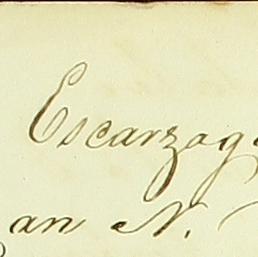 Escarzag
an N.